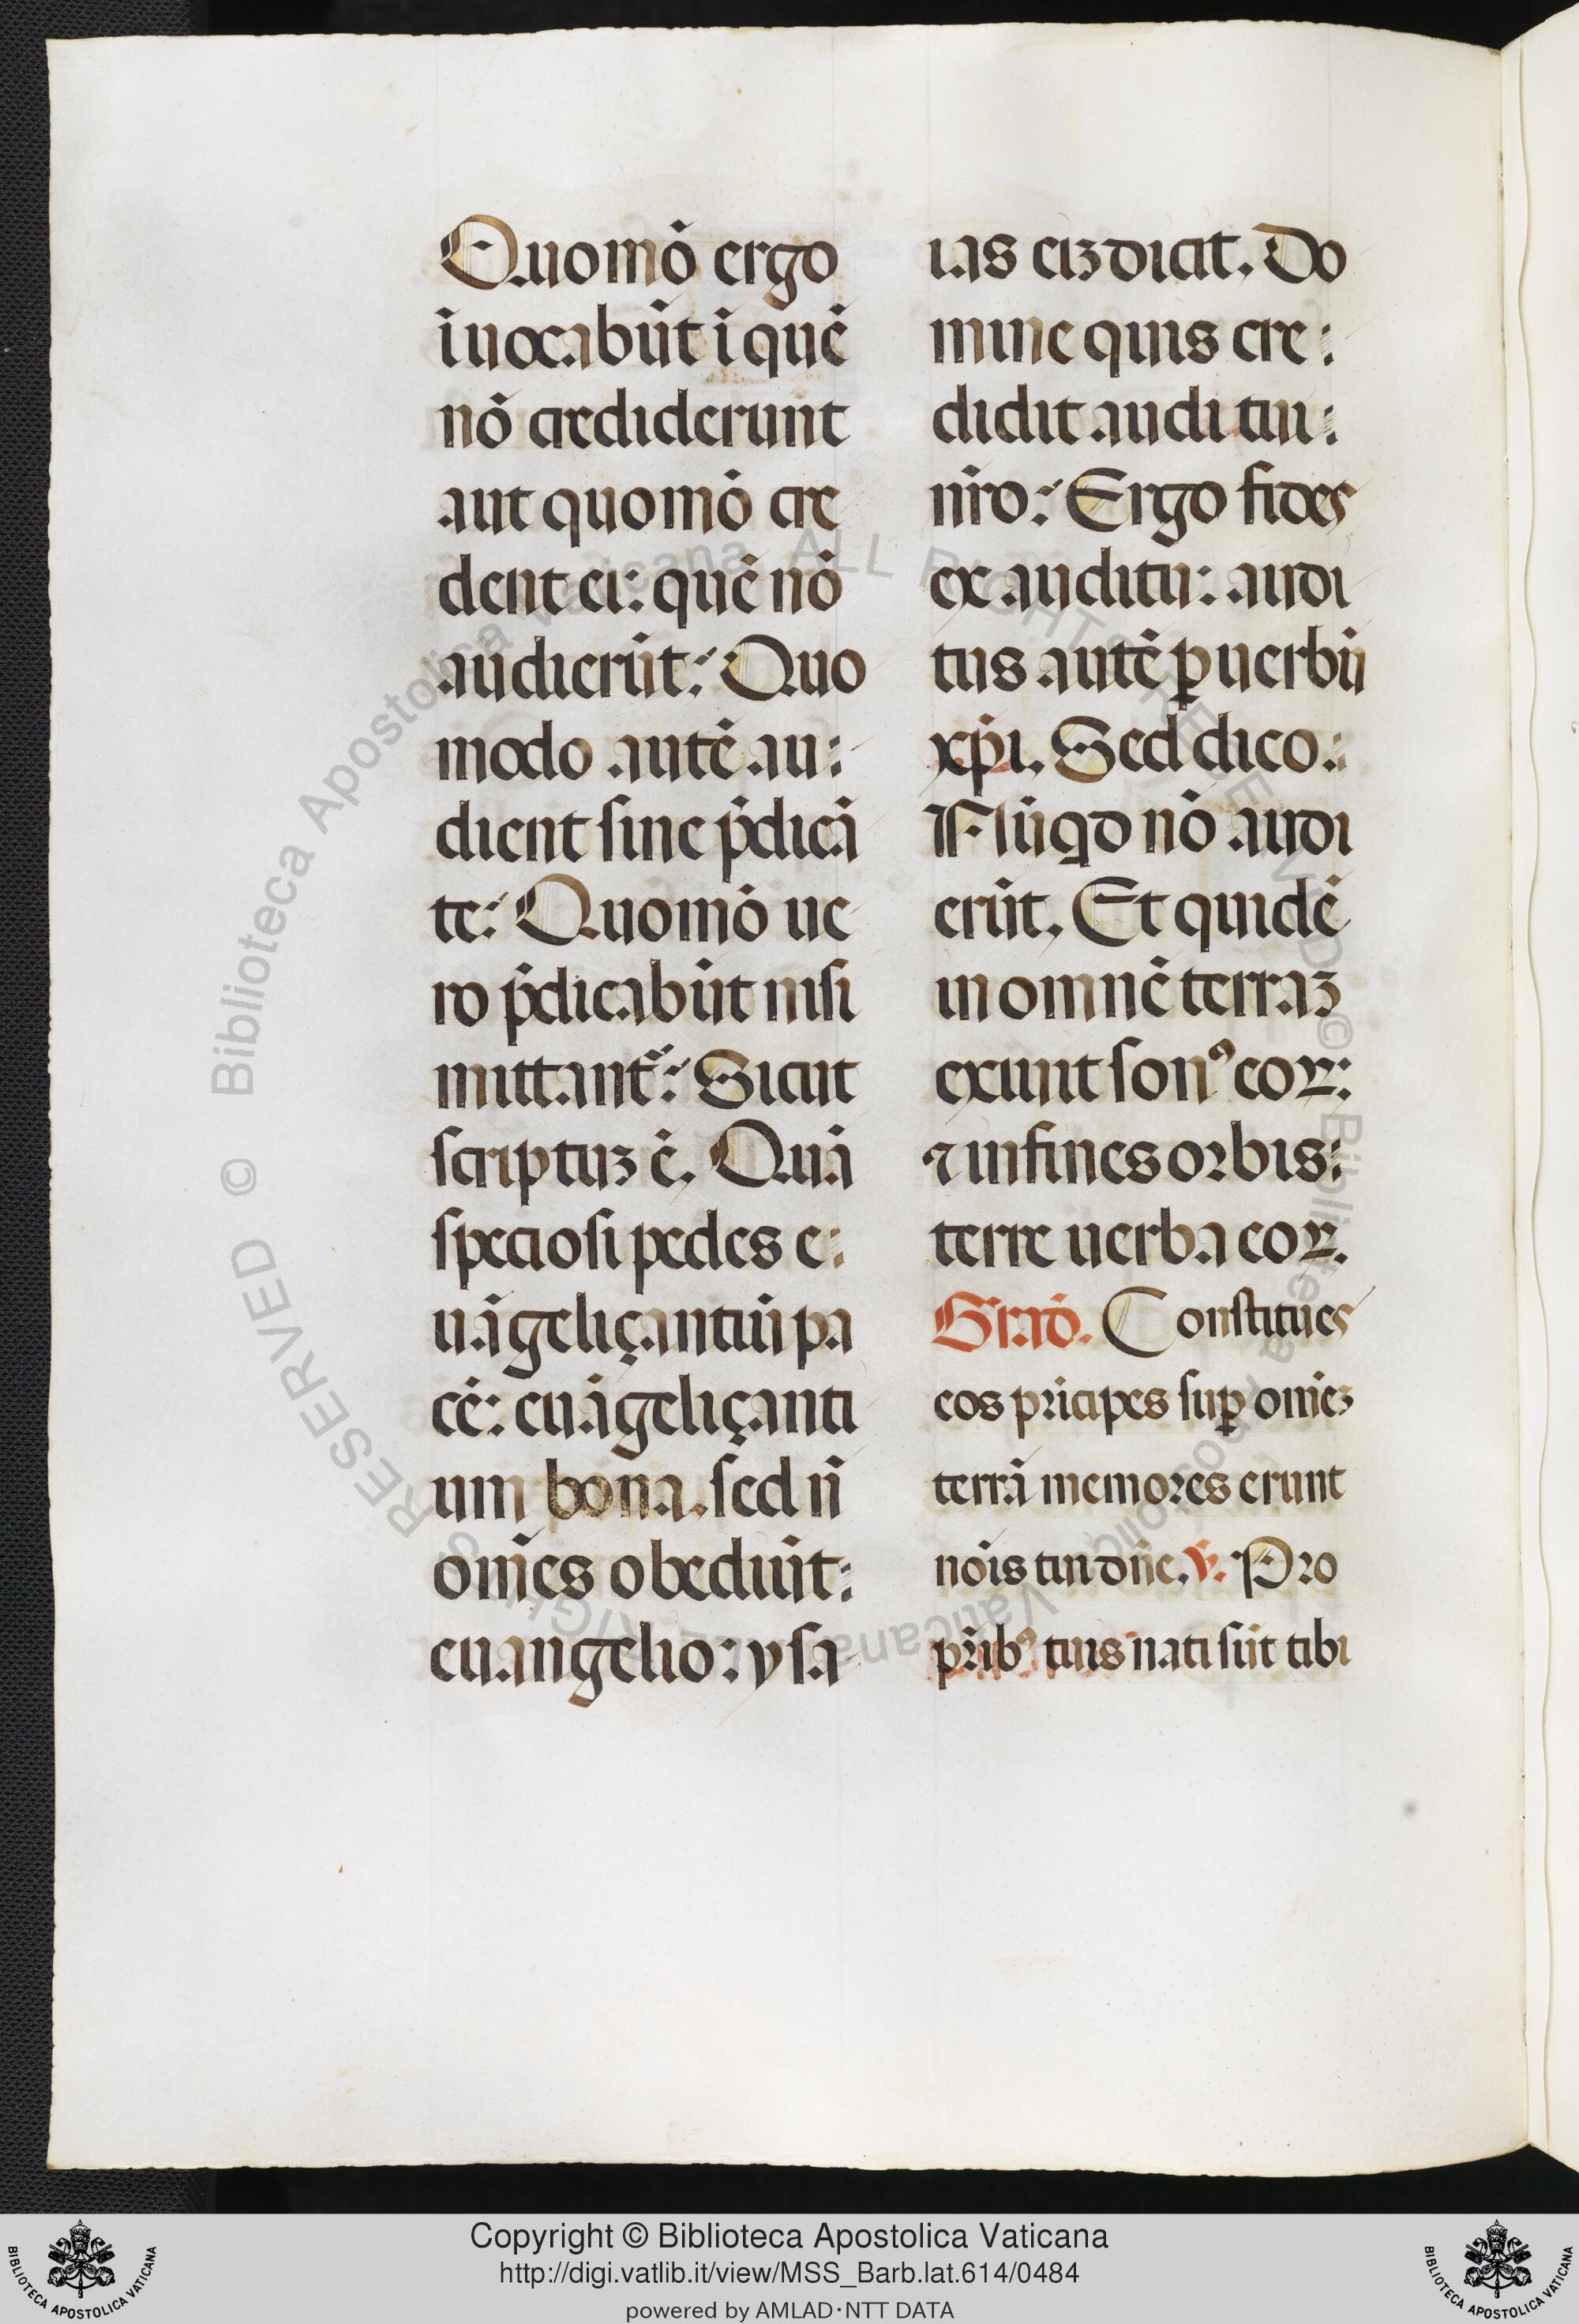 Quomō ergo
īuocabūt ī quē
nō crediderunt
aut quomō cre
dent ei: quē nō
audierūt:́ Quo
modo autē au:
dient sine p̄dicā
te:́ Quomō ue
ro p̄dicabūt nisi
mittant᷑:́ Sicut
scriptuꝫ ē. Quā
speciosi pedes e:
uāgeliçantiū pa
cē: euāgeliçanti
um bona. sed n̄
om̄es obediūt:
euangelio: ysa
ias eīꝫ dicit. Do
mine quis cre:
didit auditui:
nr̄o:́ Ergo fides
ex auditu: audi
tus autē ꝑ uerbū
xp̄i. Sed dico.:
Nūqd nō audi
erūt. Et quidē
in omnē terraꝫ
exiuit sonꝰ eoꝝ:
⁊ in fines orbis:
terre uerba eoꝝ.
Grad̄. Constitues
eos prīcipes suꝑ om̄eꝫ
terrā memores erunt
nōis tui dn̄e. ℣. Pro
pr̄ibꝰ tuis nati sūt tibi
Copyright © Biblioteca Apostolica Vaticana
http://digi.vatlib.it/view/MSS_Barb.lat.614/0484
powered by AMLAD·NTT DATA
BIBLIOTECA APOSTOLICA VATICANA
BIBLIOTECA APOSTOLICA VATICANA
© Biblioteca Apostolica Vaticana ALL RIGHTS RESERVED © Biblioteca Apostolica Vaticana ALL RIGHTS RESERVED